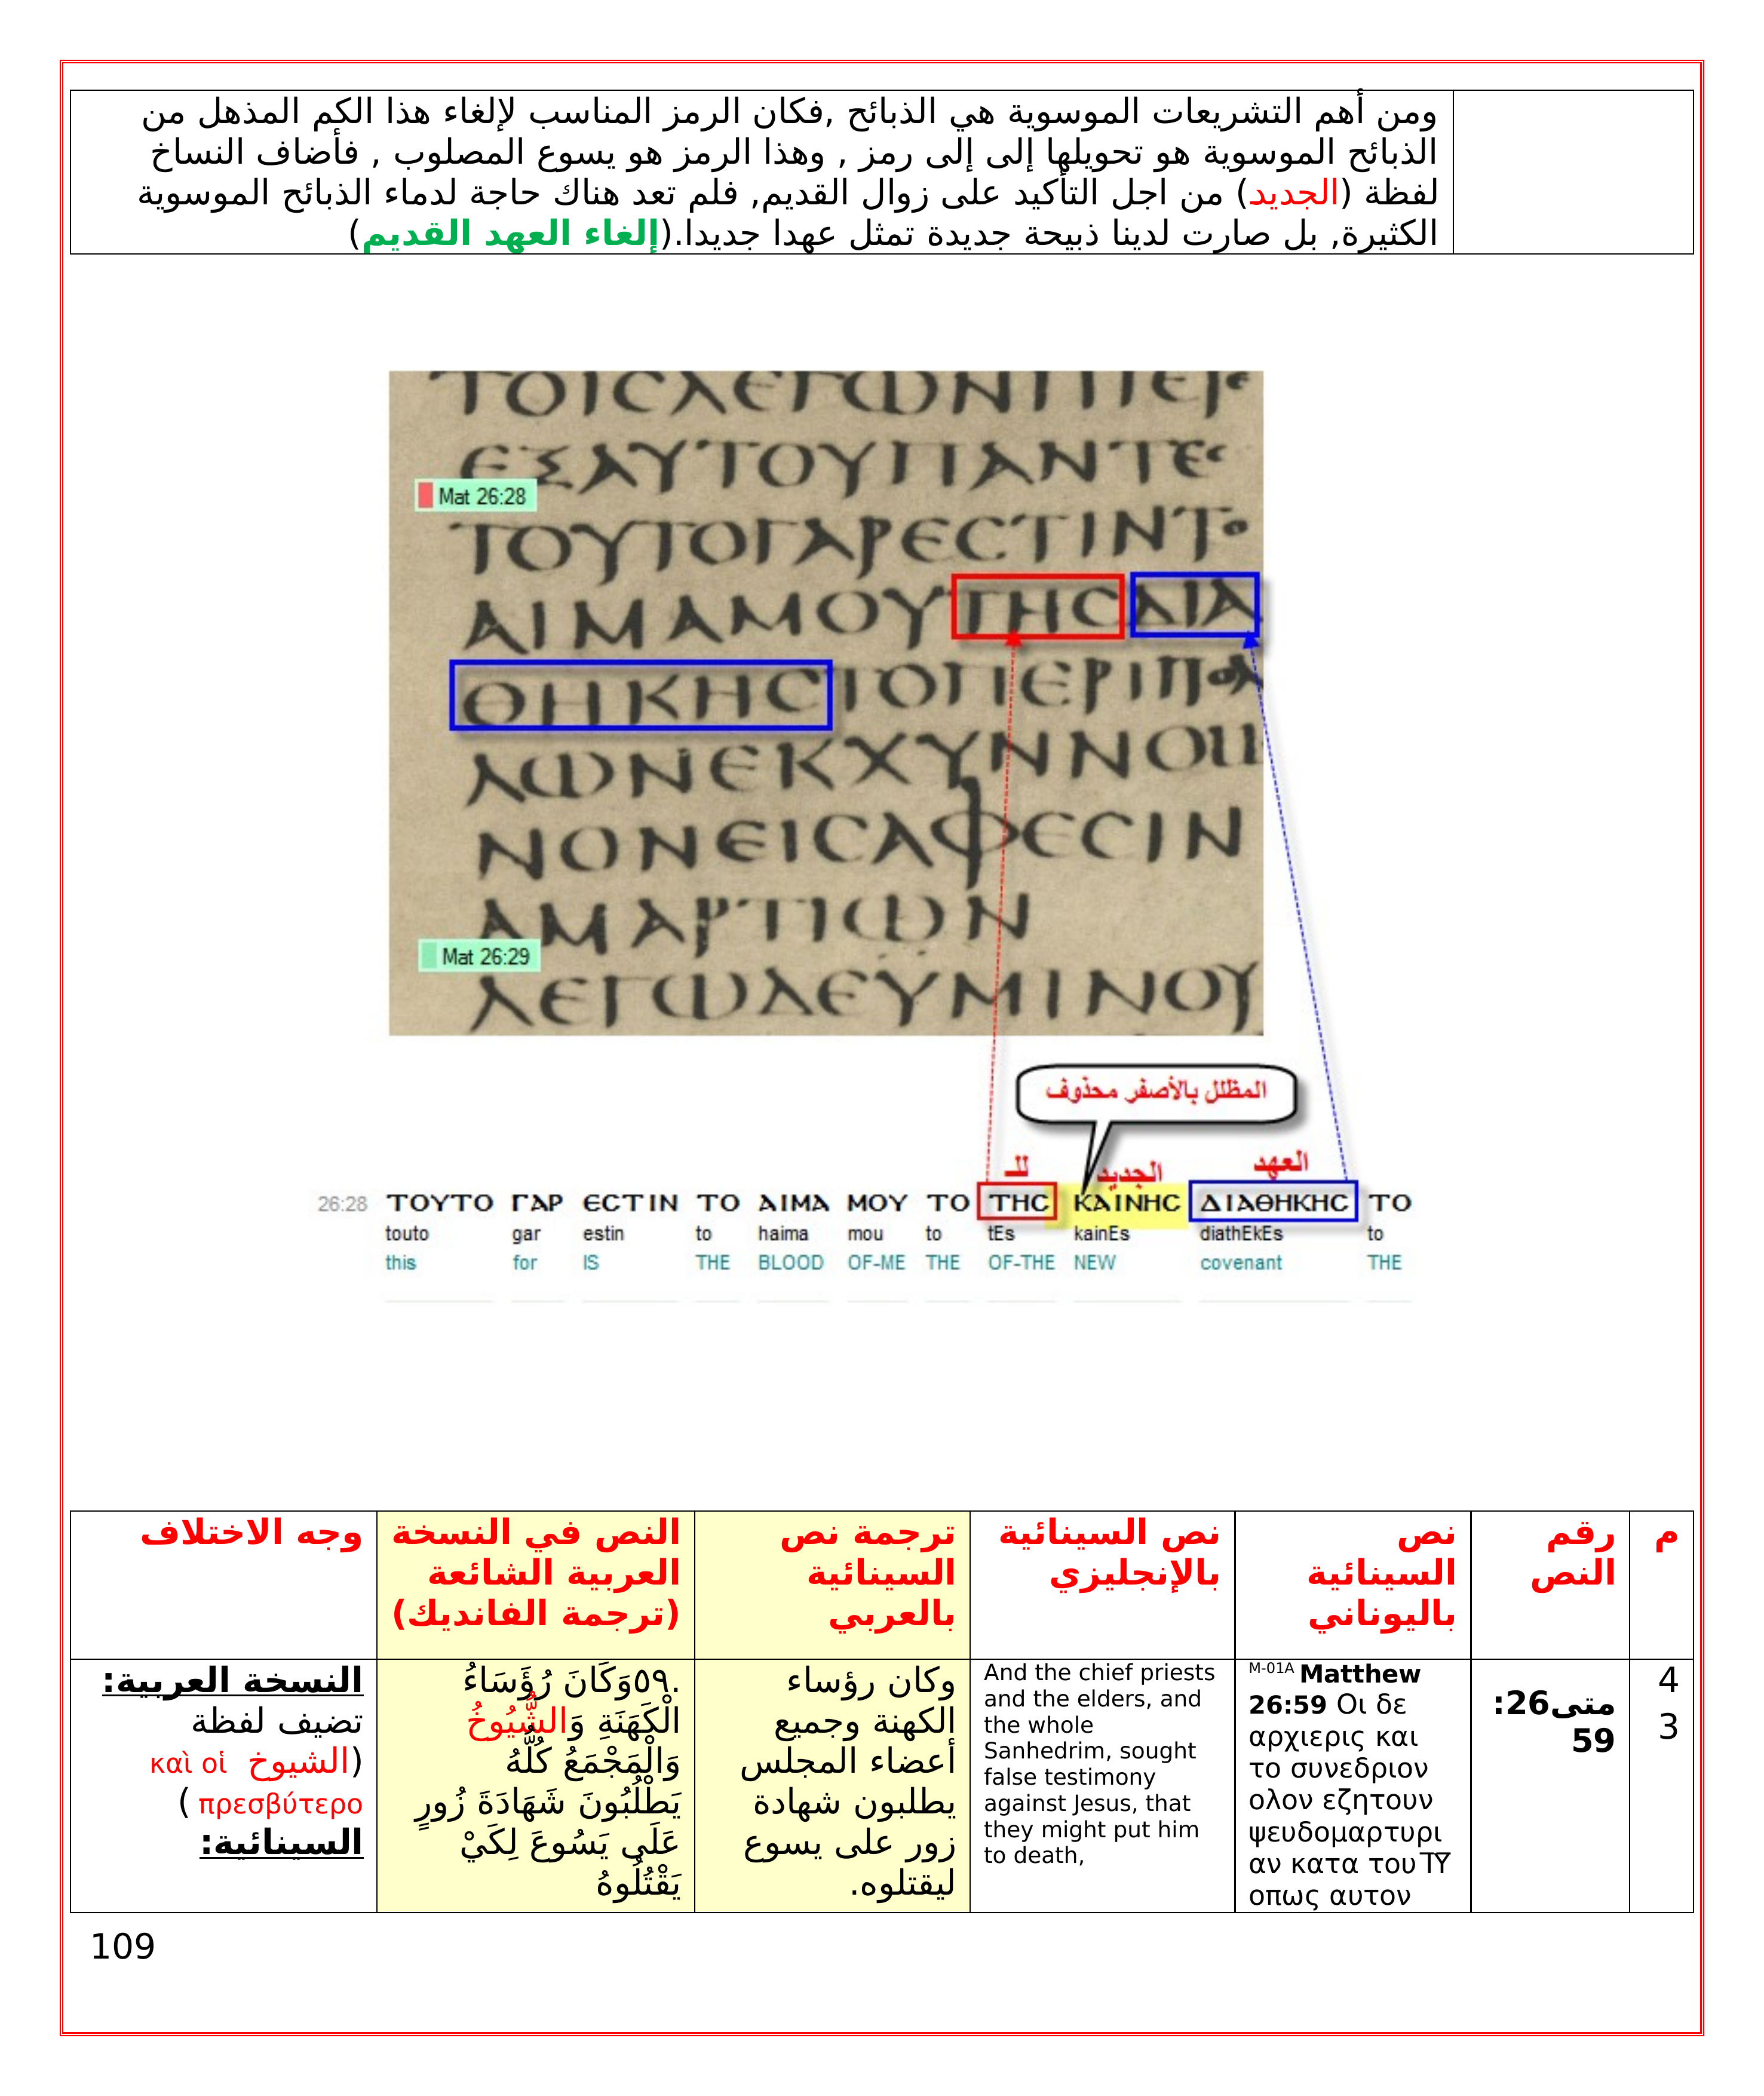 ومن أهم التشريعات الموسوية هي الذبائح ,فكان الرمز المناسب لإلغاء هذا الكم المذهل من
الذبائح الموسوية هو تحويلها إلى إلى رمز , وهذا الرمز هو يسوع المصلوب , فأضاف النساخ
لفظة (الجديد) من اجل التأكيد على زوال القديم, فلم تعد هناك حاجة لدماء الذبائح الموسوية
الكثيرة, بل صارت لدينا ذبيحة جديدة تمثل عهدا جديدا.(إلغاء العهد القديم)
ΤΟΙCΛΕΓΩΝΠΙΕΤΕ
ΕΞΑΥΤΟΥΠΑΝΤΕC
Mat 26:28
ΤΟΥΤΟΓΑΡΕCΤΙΝΤΟ
ΑΙΜΑΜΟΥΤΗCΔΙΑ
ΘΗΚΗCΤΟΠΕΡΙΠΟΛ
ΛΩΝΕΚΧΥΝΝΟΜΕ
ΝΟΝΕΙCΑΦΕCΙΝ
ΑΜΑΡΤΙΩΝ
Mat 26:29
ΛΕΓΩΔΕΥΜΙΝΟΥ
المظلل بالأصفر محذوف
للـ الجديد العهد
26:28 ΤΟΥΤΟ ΓΑΡ ΕCΤΙΝ ΤΟ ΑΙΜΑ ΜΟΥ ΤΟ ΤΗC ΚΑΙΝΗC ΔΙΑΘΗΚΗC ΤΟ
touto gar estin to haima mou to tEs kainEs diathEkEs to
this for IS THE BLOOD OF-ME THE OF-THE NEW covenant THE
م
رقم
النص
نص
السينائية
باليوناني
نص السينائية
بالإنجليزي
ترجمة نص
السينائية
بالعربي
النص في النسخة
العربية الشائعة
(ترجمة الفانديك)
وجه الاختلاف
4
3
متى26:
59
M-01A Matthew
26:59 Οι δε
αρχιερις και
το συνεδριον
ολον εζητουν
ψευδομαρτυρι
αν κατα του ΙΥ
οπως αυτον
And the chief priests
and the elders, and
the whole
Sanhedrim, sought
false testimony
against Jesus, that
they might put him
to death,
وكان رؤساء
الكهنة وجميع
أعضاء المجلس
يطلبون شهادة
زور على يسوع
ليقتلوه.
.٥٩وَكَانَ رُؤَسَاءُ
الْكَهَنَةِ وَالشُّيُوخُ
وَالْمَجْمَعُ كُلُّهُ
يَطْلُبُونَ شَهَادَةَ زُورٍ
عَلَى يَسُوعَ لِكَيْ
يَقْتُلُوهُ
النسخة العربية:
تضيف لفظة
(الشيوخ καὶ οἱ
πρεσβύτερο )
السينائية:
109